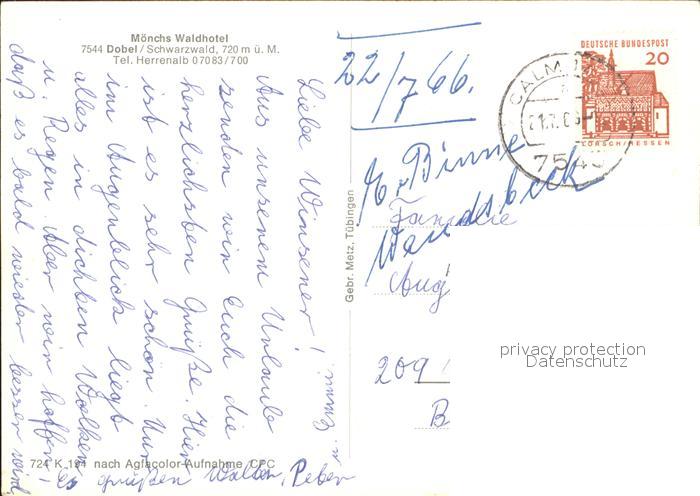 Mönchs Waldhotel
7544 Dobel / Schwarzwald, 720 m ü. M.
Tel. Herrenalb 07083/700
Liebe Winsener!
Aus unserem Urlaub
senden wir Euch die
herzlichsten Grüße. Hier
ist es sehr schön. Nur
im Augenblick liegt
alles in dichten Wolken
u. Regen. Aber wir hoffen,
daß es bald wieder besser wird
Es grüßen Walter, Peter
u.
724 K 194 nach Agfacolor-Aufnahme CPC
Gebr. Metz, Tübingen
22/7 66.
DEUTSCHE BUNDESPOST
20
LORSCH/HESSEN
CALW
754
Familie
Wandsbeck
209
B
privacy protection
Datenschutz